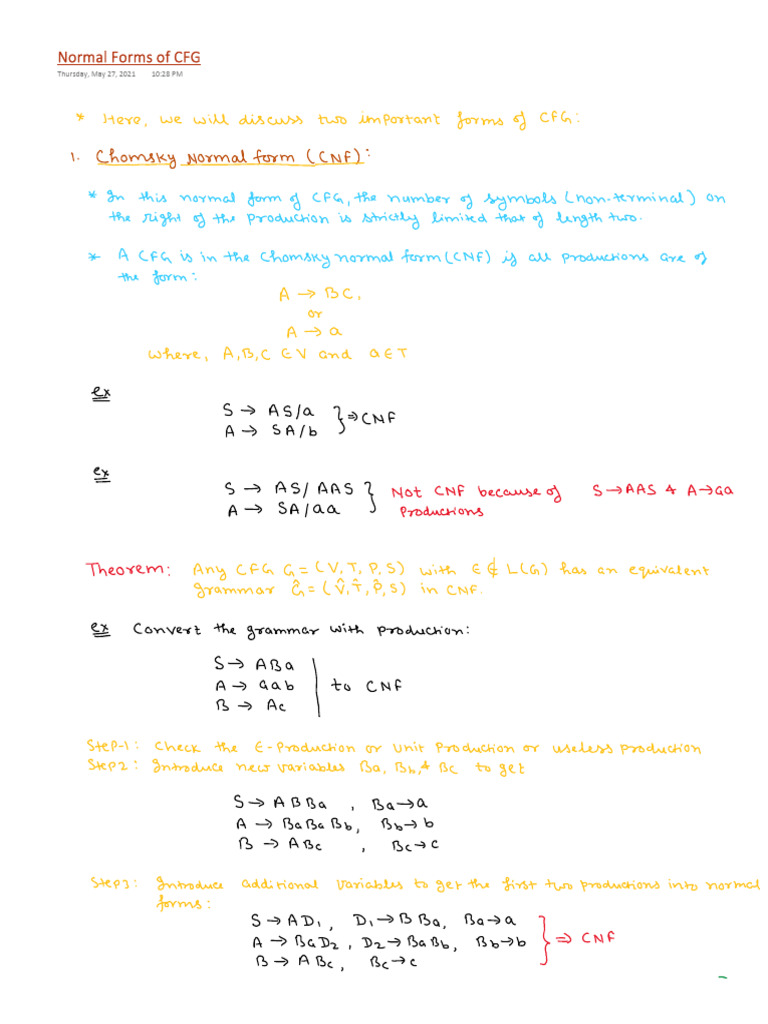 Normal Forms of CFG
Thursday, May 27, 2021 10:28 PM
* Here, we will discuss two important forms of CFG:
1. Chomsky Normal form (CNF):
* In this normal form of CFG, the number of symbols (non-terminal) on
the right of the production is strictly limited that of length two.
* A CFG is in the Chomsky normal form (CNF) if all productions are of
the form:
A → BC,
or
A → a
where, A,B,C ∈ V and a ∈ T
ex
S → AS/a
A → SA/b } ⇒ CNF
ex
S → AS/AAS
A → SA/aa } Not CNF because of S→AAS & A→aa
Productions
Theorem: Any CFG G = (V, T, P, S) with ∈ ∉ L(G) has an equivalent
grammar Ĝ = (V̂, T̂, P̂, S) in CNF.
ex Convert the grammar with production:
S → ABa
A → aab to CNF
B → Ac
Step-1: Check the ∈-Production or Unit Production or useless production
Step2: Introduce new variables Ba, Bb, & Bc to get
S → ABBa , Ba → a
A → BaBaBb, Bb → b
B → ABc , Bc → c
Step3: Introduce additional variables to get the first two productions into normal
forms:
S → AD1, D1 → BBa, Ba → a
A → BaD2, D2 → BaBb, Bb → b } ⇒ CNF
B → ABc, Bc → c